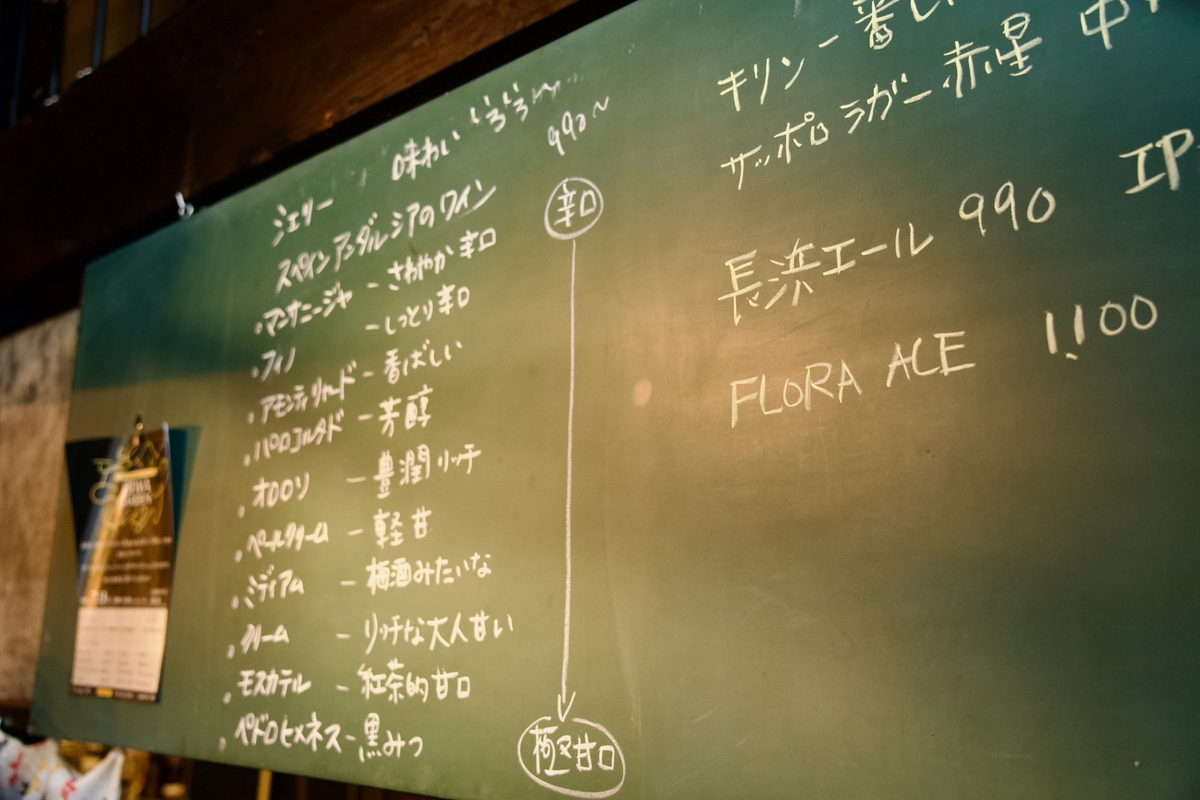 味わい いろいろ
990~
シェリー
スペイン アンダルシアのワイン
・マンサニージャ - さわやか 辛口
・フィノ - しっとり辛口
・アモンティリャード - 香ばしい
・パロコルタド - 芳醇
・オロロソ - 豊潤リッチ
・ペールクリーム - 軽甘
・ミディアム - 梅酒みたいな
・クリーム - リッチな大人甘い
・モスカテル - 紅茶的甘口
・ペドロヒメネス - 黒みつ
辛口
極甘口
キリン 一番し
サッポロラガー 赤星 中
IP
長浜エール 990
FLORA ACE 1,100